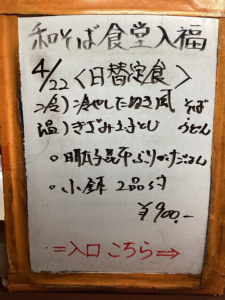 和そば食堂入福
4/22<日替定食>
冷)冷やしたぬき風 そば
温)きざみ玉子とじ うどん
○ ぶりかけごはん
○ 小鉢 2品付
¥900.-
=入口 こちら⇒